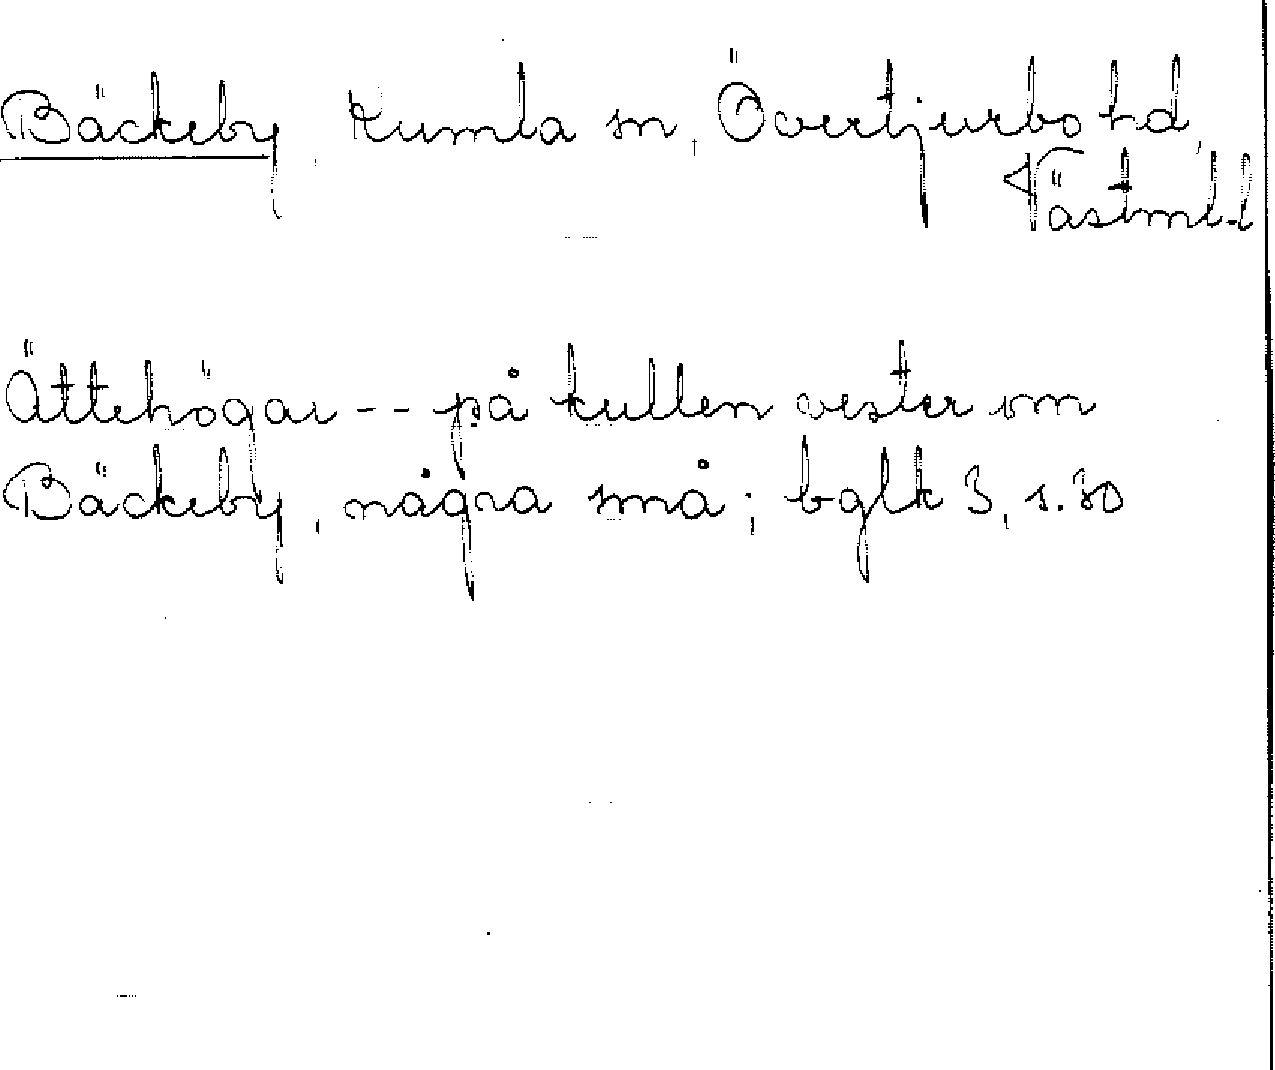 Bäckeby, Kumla sn, Övertjurbo hd,
Västml.l
Ättehögar -- på kullen vester om
Bäckeby, några små; bglk 3, s.30